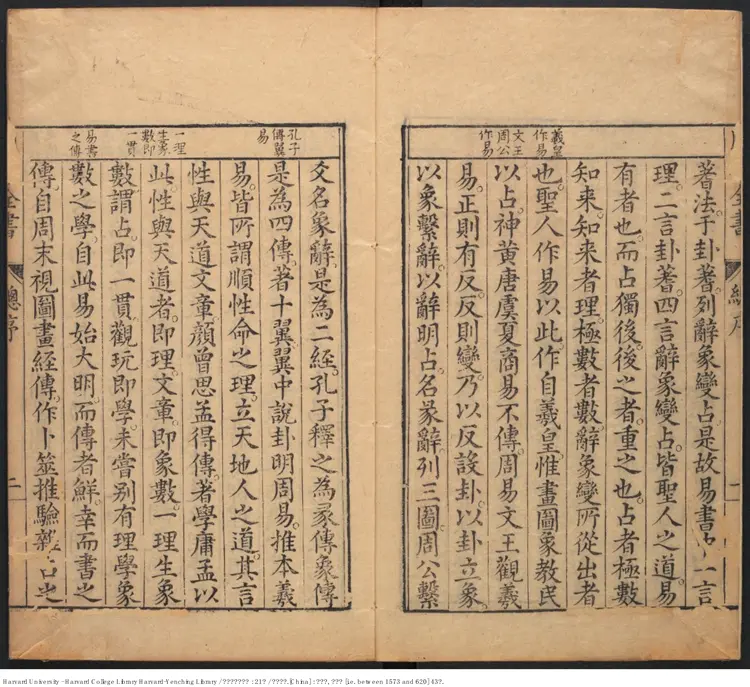 全書
總序
羲皇
作易
文王
周公
作易
著法于卦蓍列辭象變占是故易書一言
理二言卦蓍四言辭象變占皆聖人之道易
有者也而占獨後後之者重之也占者極數
知来知来者理極數者數辭象變所從出者
也聖人作易以此作自羲皇惟畫圖象教民
以占神黄唐虞夏商易不傳周易文王觀羲
易正則有反反則變乃以反設卦以卦立象
以象繫辭以辭明占名彖辭列三圖周公繫
孔子
傳翼
易
一理
生象
數即
一貫
易書
之傳
爻名象辭是為二經孔子釋之為彖傳象傳
是為四傳著十翼翼中說卦明周易推本羲
易皆所謂順性命之理立天地人之道其言
性與天道文章顔曾思孟得傳著學庸孟以
此性與天道者即理文章即象數一理生象
數謂占即一貫觀玩即學未嘗别有理學象
數之學自此易始大明而傳者鮮幸而書之
傳自周末視圖畫經傳作卜筮推驗雜占
全書
總序
二
Harvard University - Harvard College Library Harvard-Yenching Library / ??????? : 21? / ????. [China] : ???, ??? [i.e. between 1573 and 620] 43?.